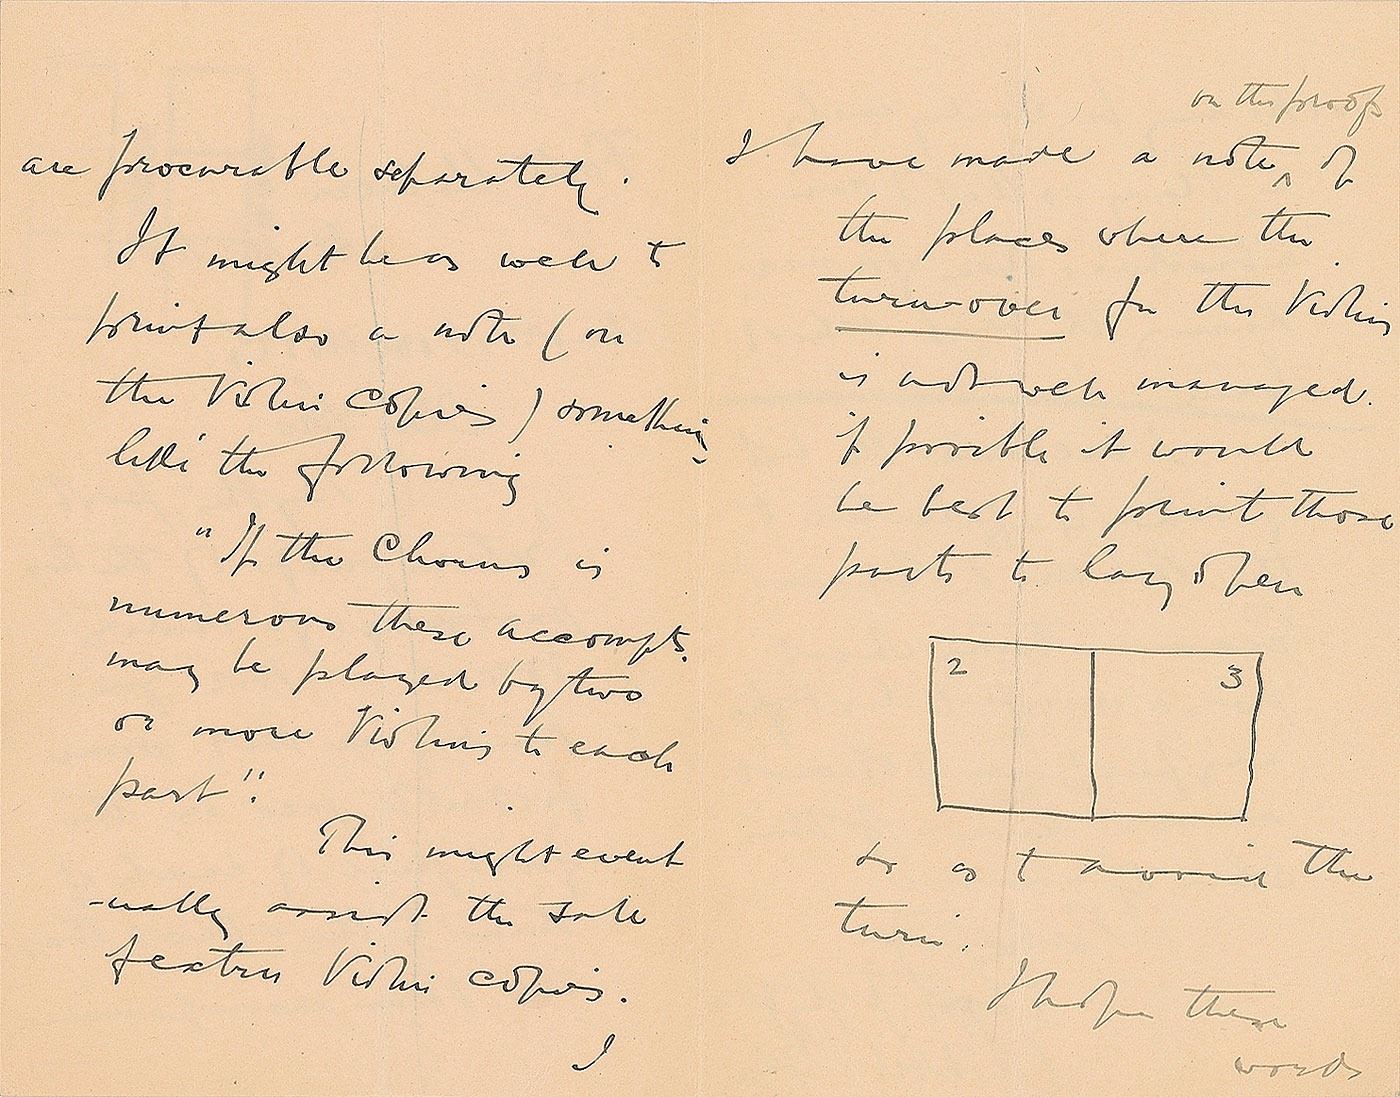 are procurable separately.
It might be as well to
print also a note (on
the Violin copies) something
like the following
"If the Chorus is
numerous these accompts.
may be played by two
or more Violins to each
part".
This might event
-ually assist the sale
of extra Violin copies.
I
on the proofs
I have made a note ^ of
the places where the
turn-over for the Violins
is not well managed.
if possible it would
be best to print those
parts to lay open
2 3
so as to avoid the
turn.
I hope these
words